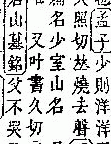 也孟子少則洋洋
失照切𠀤燒去聲
無名少室山名
又叶書久切
石山墓銘父不哭